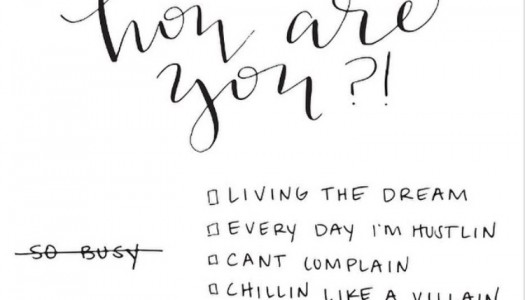 how are
you?!
□ LIVING THE DREAM
□ EVERY DAY I'M HUSTLIN
SO BUSY
□ CANT COMPLAIN
□ CHILLIN LIKE A VILLAIN